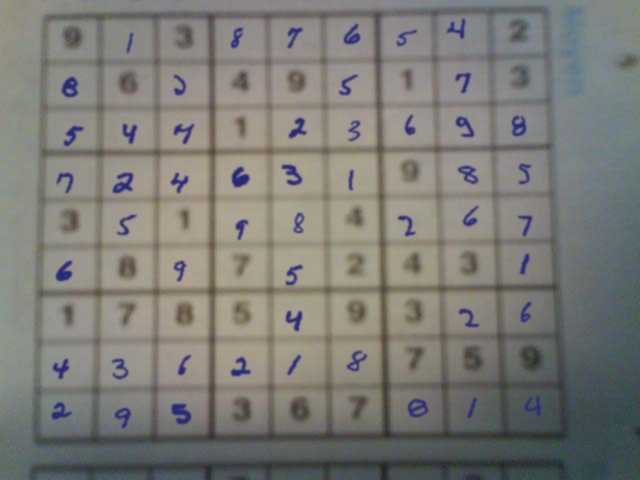 9 1 3 8 7 6 5 4 2
8 6 2 4 9 5 1 7 3
5 4 7 1 2 3 6 9 8
7 2 4 6 3 1 9 8 5
3 5 1 9 8 4 2 6 7
6 8 9 7 5 2 4 3 1
1 7 8 5 4 9 3 2 6
4 3 6 2 1 8 7 5 9
2 9 5 3 6 7 8 1 4
Moyen